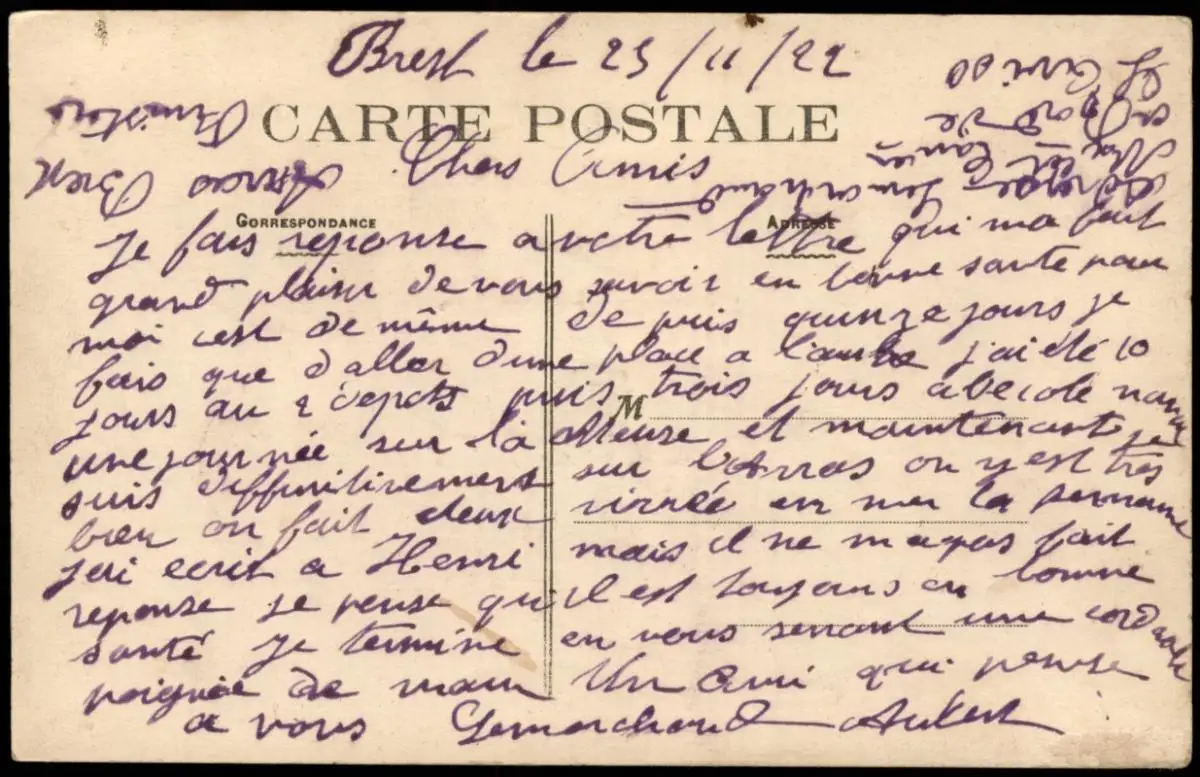 Brest le 23/11/22
CARTE POSTALE
Chers Amis
CORRESPONDANCE
ADRESSE
Je fais réponse a votre lettre qui ma fait
grand plaisir de vous savoir en bonne sante pour
moi cest de même de puis quinze jours je
fais que d'aller dune place a l'autre j'ai été 10
jours au 2 depots puis trois jours a lecole nav
une journée sur la Meuse et maintenant je
suis diffinitivement sur l'Arras on y est très
bien on fait deux virrée en mer la semaine
jai ecrit a Henri mais il ne ma pas fait
reponse je pense qu'il est toujours en bonne
santé je termine en vous serrant une cordiale
poignée de main Un Ami qui pense
a vous Lemarchand Aubert
M
Adresse Lemarchand
Matelot
a Bord de
L'Aviso
Arras Brest
Finistère